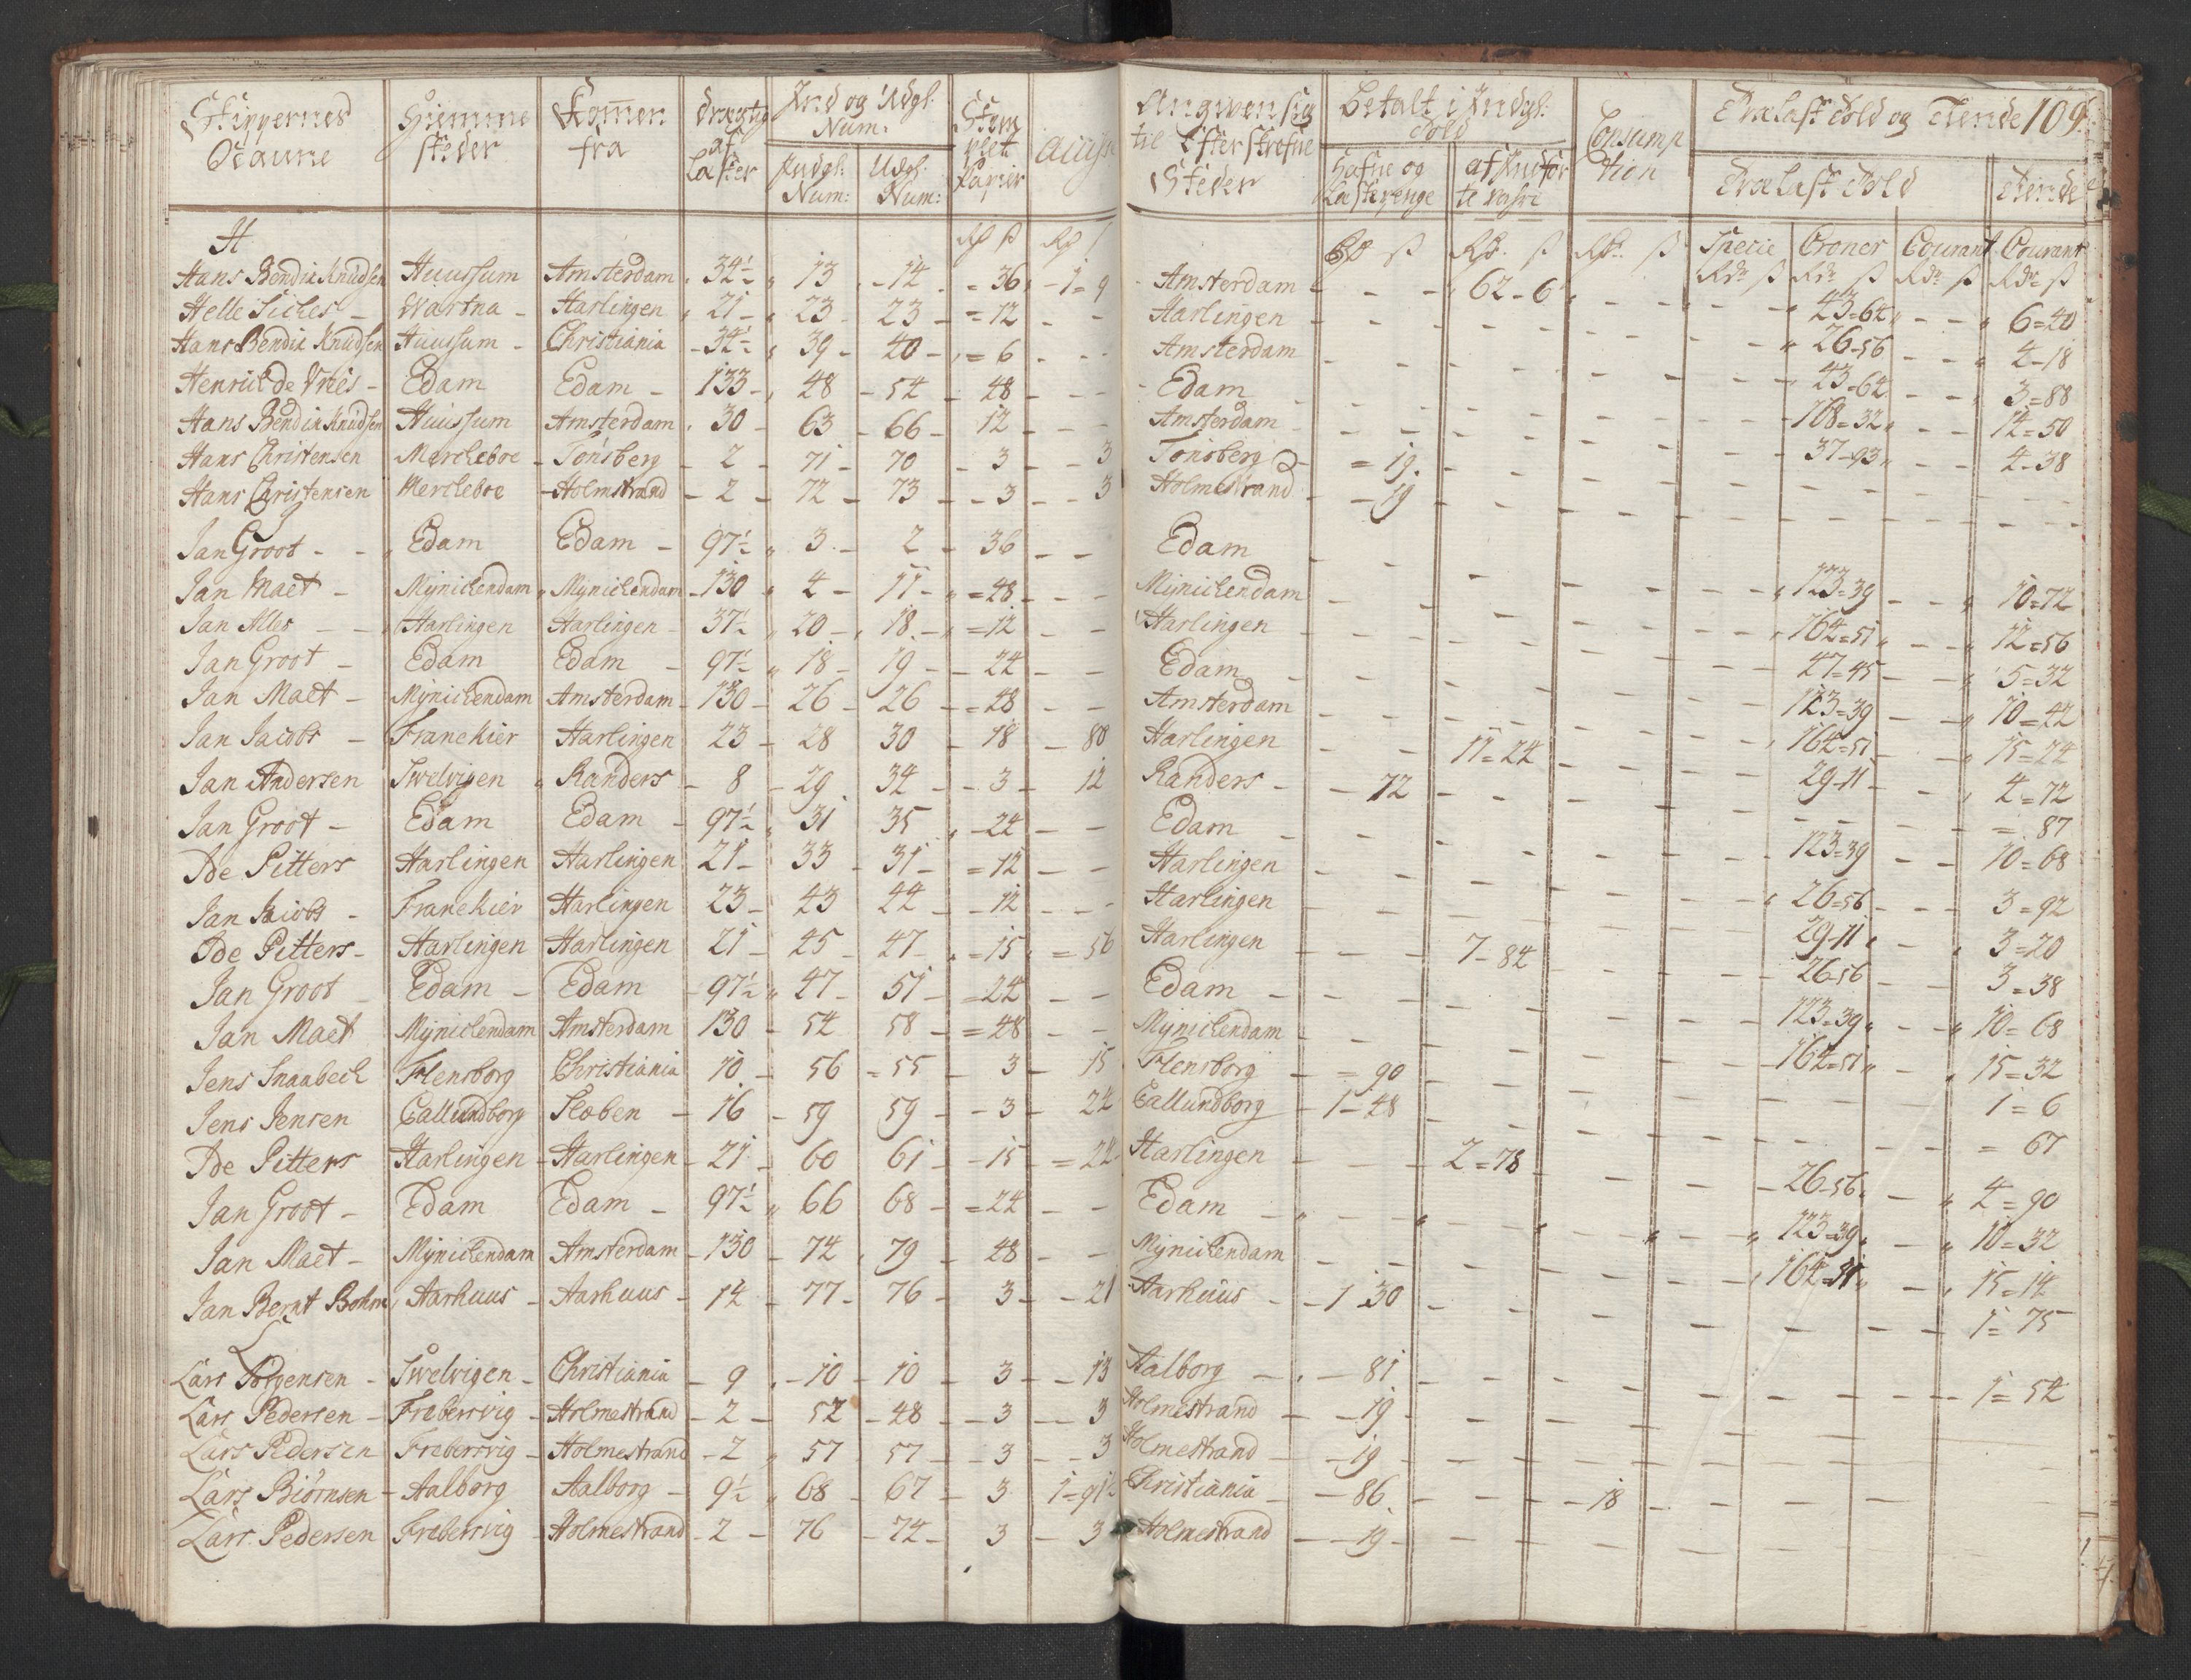 Skippernes Naune | Hiemme steder | Kom̄en fra | Drægtig af Læster | Ind og Udgl: Num: | Stemplet Papier | Accise | Angiven sig til Efterskrefne Steder | Betalt i Indgl: Told | Consumption | Trælast Told og Tiende 109.
Indgl: Num: | Udgl: Num: | Hafne og Lastepenge | af Indførte Vahre | Trælast Told | Tiende
H | Rd ß | Rd ß | Rd ß | Rd. ß | Rd. ß | Specie Rdr ß | Croner Rdr ß | Courant Rdr ß | Courant Rdr ß
Hans Bendix Knudsen | Huussum | Amsterdam | 34½ | 13 | 14 | = 36 | 1=9 | Amsterdam | - | 62-6 | - | - | 43=64 | - | 6=40
Helle Sickes | Wartna | Harlingen | 21 | 23 | 23 | =12 | - | Harlingen | - | - | - | - | 26-56 | - | 4-18
Hans Bendix Knudsen | Huussum | Christiania | 34½ | 39 | 40 | = 6 | - | Amsterdam | - | - | - | - | 43=64 | - | 3=88
Henrich de Vries | Edam | Edam | 133 | 48 | 54 | 48 | - | Edam | - | - | - | - | 168=32 | - | 14=50
Hans Bendix Knudsen | Huussum | Amsterdam | 30 | 63 | 66 | 12 | - | Amsterdam | - | - | - | - | 37-93 | - | 4-38
Hans Christensen | Mercheboe | Tonsberg | 2 | 71 | 70 | 3 | 3 | Tonsberg | = 19 | - | - | - | - | - | -
Hans Christensen | Mercheboe | Holmstrand | 2 | 72 | 73 | 3 | 3 | Holmestrand | = 19 | - | - | - | - | - | -
Jan Groot | Edam | Edam | 97½ | 3 | 2 | 36 | - | Edam | - | - | - | - | 123=39 | - | 10=72
Jan Maet | Mynichendam | Mynichendam | 130 | 4 | 11 | =48 | - | Mynichendam | - | - | - | - | 164=51 | - | 12=56
Jan Alles | Harlingen | Harlingen | 37½ | 20 | 18 | =12 | - | Harlingen | - | - | - | - | 47=45 | - | 5=32
Jan Groot | Edam | Edam | 97½ | 18 | 19 | 24 | - | Edam | - | - | - | - | 123=39 | - | 10=42
Jan Maet | Mynichendam | Amsterdam | 130 | 26 | 26 | =48 | - | Amsterdam | - | - | - | - | 164=51 | - | 15=24
Jan Jacobs | Franekier | Harlingen | 23 | 28 | 30 | 18 | 80 | Harlingen | - | 11=24 | - | - | 29-11 | - | 4=72
Jan Andersen | Swelvigen | Randers | 8 | 29 | 34 | 3 | 12 | Randers | 72 | - | - | - | - | - | = 87
Jan Groot | Edam | Edam | 97½ | 31 | 35 | 24 | - | Edam | - | - | - | - | 123=39 | - | 10=68
Ide Pitters | Harlingen | Harlingen | 21 | 33 | 31 | =12 | - | Harlingen | - | - | - | - | 26=56 | - | 3=92
Jan Jacobs | Franekier | Harlingen | 23 | 43 | 44 | 12 | - | Harlingen | - | - | - | - | 29-11 | - | 3=20
Ide Pitters | Harlingen | Harlingen | 21 | 45 | 47 | =15 | = 56 | Harlingen | - | 7-84 | - | - | 26-56 | - | 3=38
Jan Groot | Edam | Edam | 97½ | 47 | 51 | =24 | - | Edam | - | - | - | - | 123=39 | - | 10=68
Jan Maet | Mynichendam | Amsterdam | 130 | 54 | 58 | =48 | - | Mynichendam | - | - | - | - | 164=51 | - | 15=32
Jens Snaabech | Flensborg | Christiania | 10 | 56 | 55 | 3 | 15 | Flensborg | = 90 | - | - | - | - | - | 1=6
Jens Jensen | Callundborg | Slæben | 16 | 59 | 59 | 3 | 24 | Callundborg | 1-48 | - | - | - | - | - | = 67
Ide Pitters | Harlingen | Harlingen | 21 | 60 | 61 | 15 | = 24 | Harlingen | - | 2=78 | - | - | 26-56 | - | 4=90
Jan Groot | Edam | Edam | 97½ | 66 | 68 | =24 | - | Edam | - | - | - | - | 123=39 | - | 10=32
Jan Maet | Mynichendam | Amsterdam | 130 | 74 | 79 | 48 | - | Mynichendam | - | - | - | - | 164=51 | - | 15=14
Jan Bernt Bohm | Aarhuus | Aarhuus | 14 | 77 | 76 | 3 | 21 | Aarhuus | 1-30 | - | - | - | - | - | 1=75
L
Lars Jörgensen | Swelvigen | Christiania | 9 | 10 | 10 | 3 | 13 | Aalborg | 81 | - | - | - | - | - | 1=54
Lars Pedersen | Frebersvig | Holmestrand | 2 | 52 | 48 | 3 | 3 | Holmestrand | 19 | - | - | - | - | - | -
Lars Pedersen | Frebersvig | Holmestrand | 2 | 57 | 57 | 3 | 3 | Holmestrand | 19 | - | - | - | - | - | -
Lars Biörnsen | Aalborg | Aalborg | 9½ | 68 | 67 | 3 | 1=91½ | Christiania | 86 | - | 18 | - | - | - | -
Lars Pedersen | Frebersvig | Holmestrand | 2 | 76 | 74 | 3 | 3 | Holmestrand | 19 | - | - | - | - | - | -